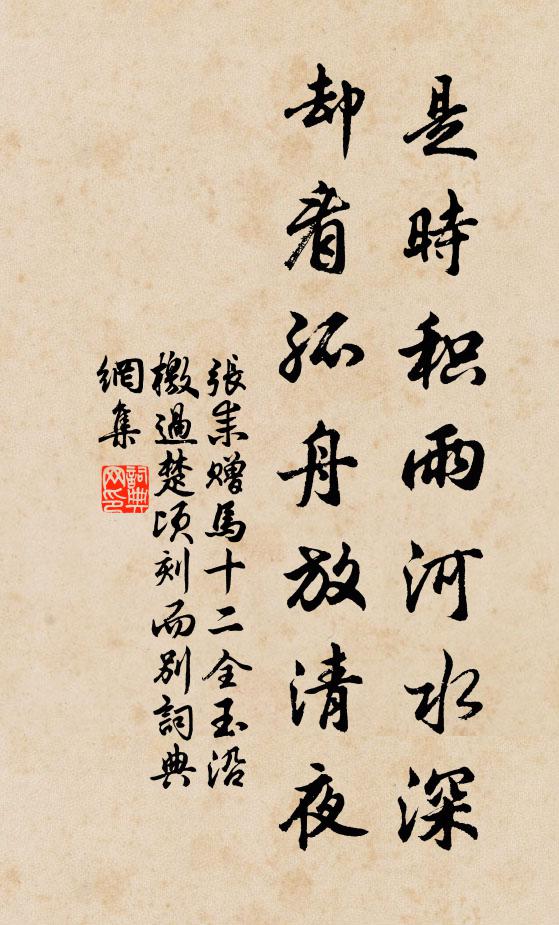 是時積雨河水深
却看孤舟放清夜
張耒贈馬十二全玉沿
檄過楚頃刻而別詞典
網集
詞典
网印